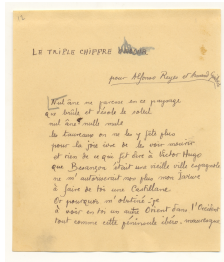 12
LE TRIPLE CHIFFRE
pour Alfonso Reyes et
Nul âne ne pousse en ce paysage
que brûle et dérole le soleil
nul âne nulle mule
les taureaux on ne les y fête plus
pour la joie ivre de le voir mourir
et rien de ce qui fit dire à Victor Hugo
que Besançon était une vieille ville espagnole
ne m'autoriserait non plus mon
à faire de toi une Castillane
Or pourquoi m'obstiné-je
à voir en toi un autre Orient dans l'Occident
tout comme cette péninsule ibéro-mauresque